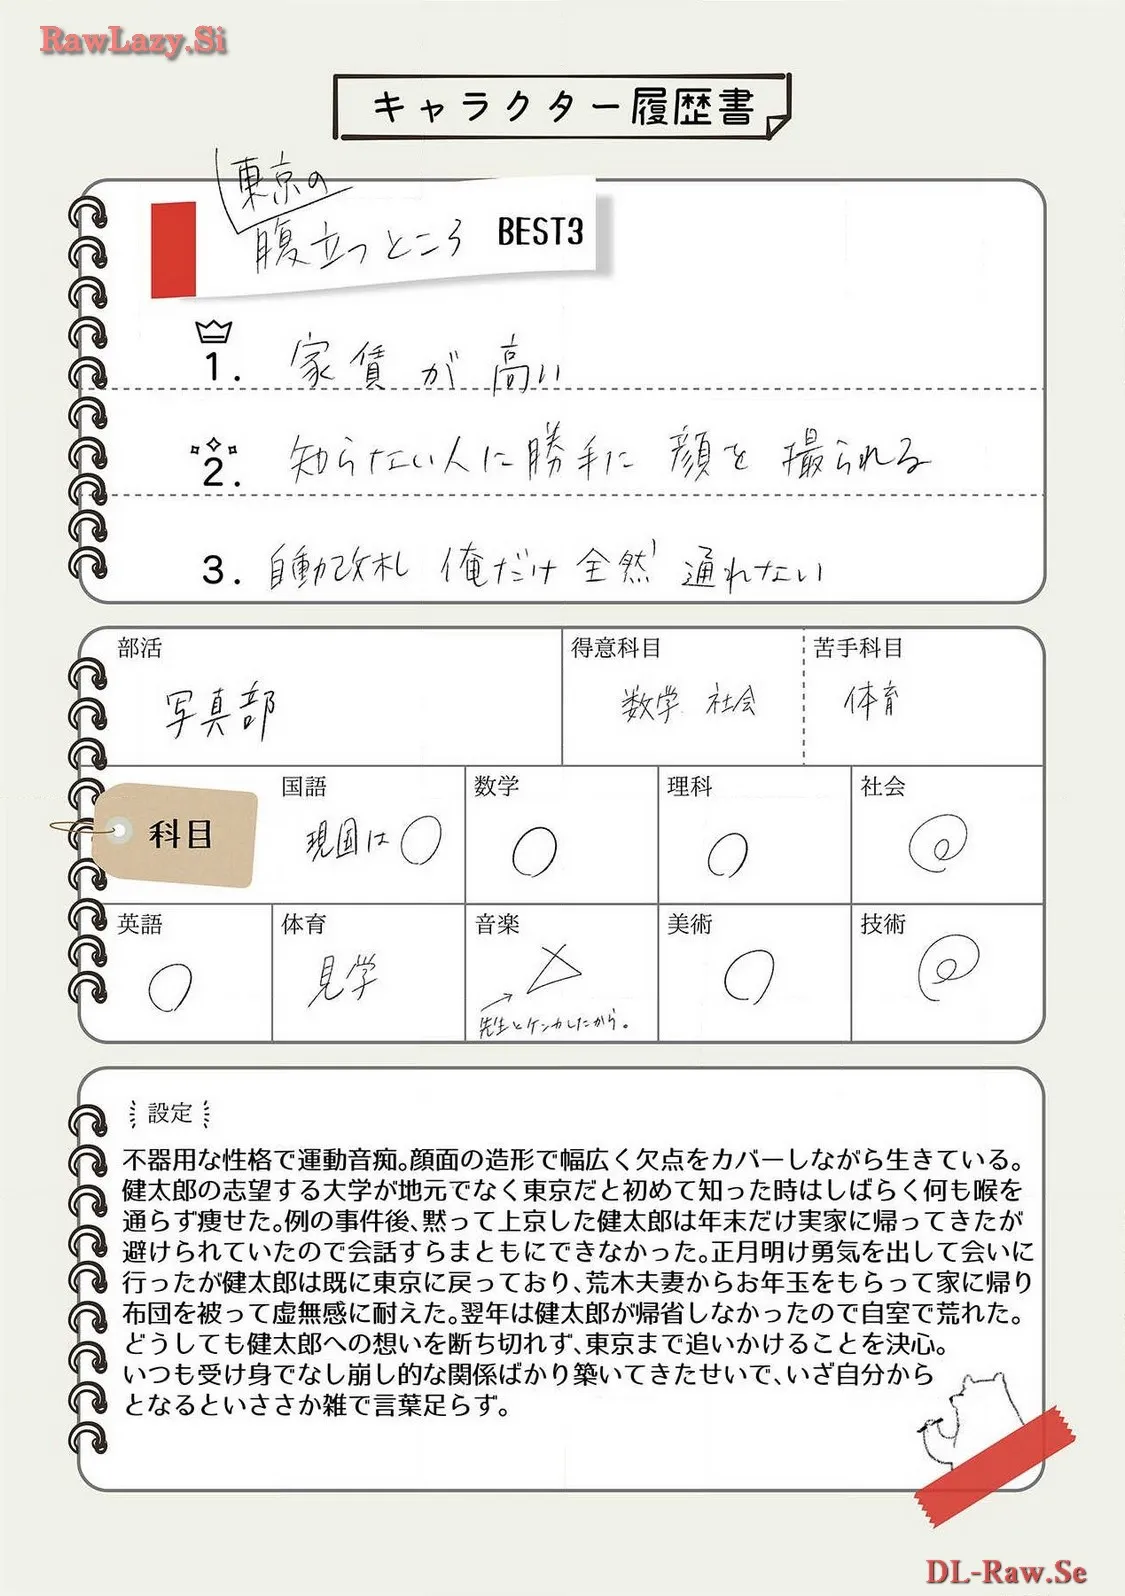 RawLazy.Si
キャラクター履歴書
東京の
腹立つところ BEST3
1. 家賃が高い
2. 知らない人に勝手に顔を撮られる
3. 自動改札 俺だけ全然通れない
部活
写真部
得意科目
数学 社会
苦手科目
体育
科目
国語
現国は○
数学
○
理科
○
社会
◎
英語
○
体育
見学
音楽
△
→先生とケンカしたから。
美術
○
技術
◎
設定
不器用な性格で運動音痴。顔面の造形で幅広く欠点をカバーしながら生きている。
健太郎の志望する大学が地元でなく東京だと初めて知った時はしばらく何も喉を
通らず痩せた。例の事件後、黙って上京した健太郎は年末だけ実家に帰ってきたが
避けられていたので会話すらまともにできなかった。正月明け勇気を出して会いに
行ったが健太郎は既に東京に戻っており、荒木夫妻からお年玉をもらって家に帰り
布団を被って虚無感に耐えた。翌年は健太郎が帰省しなかったので自室で荒れた。
どうしても健太郎への想いを断ち切れず、東京まで追いかけることを決心。
いつも受け身でなし崩し的な関係ばかり築いてきたせいで、いざ自分から
となるといささか雑で言葉足らず。
DL-Raw.Se